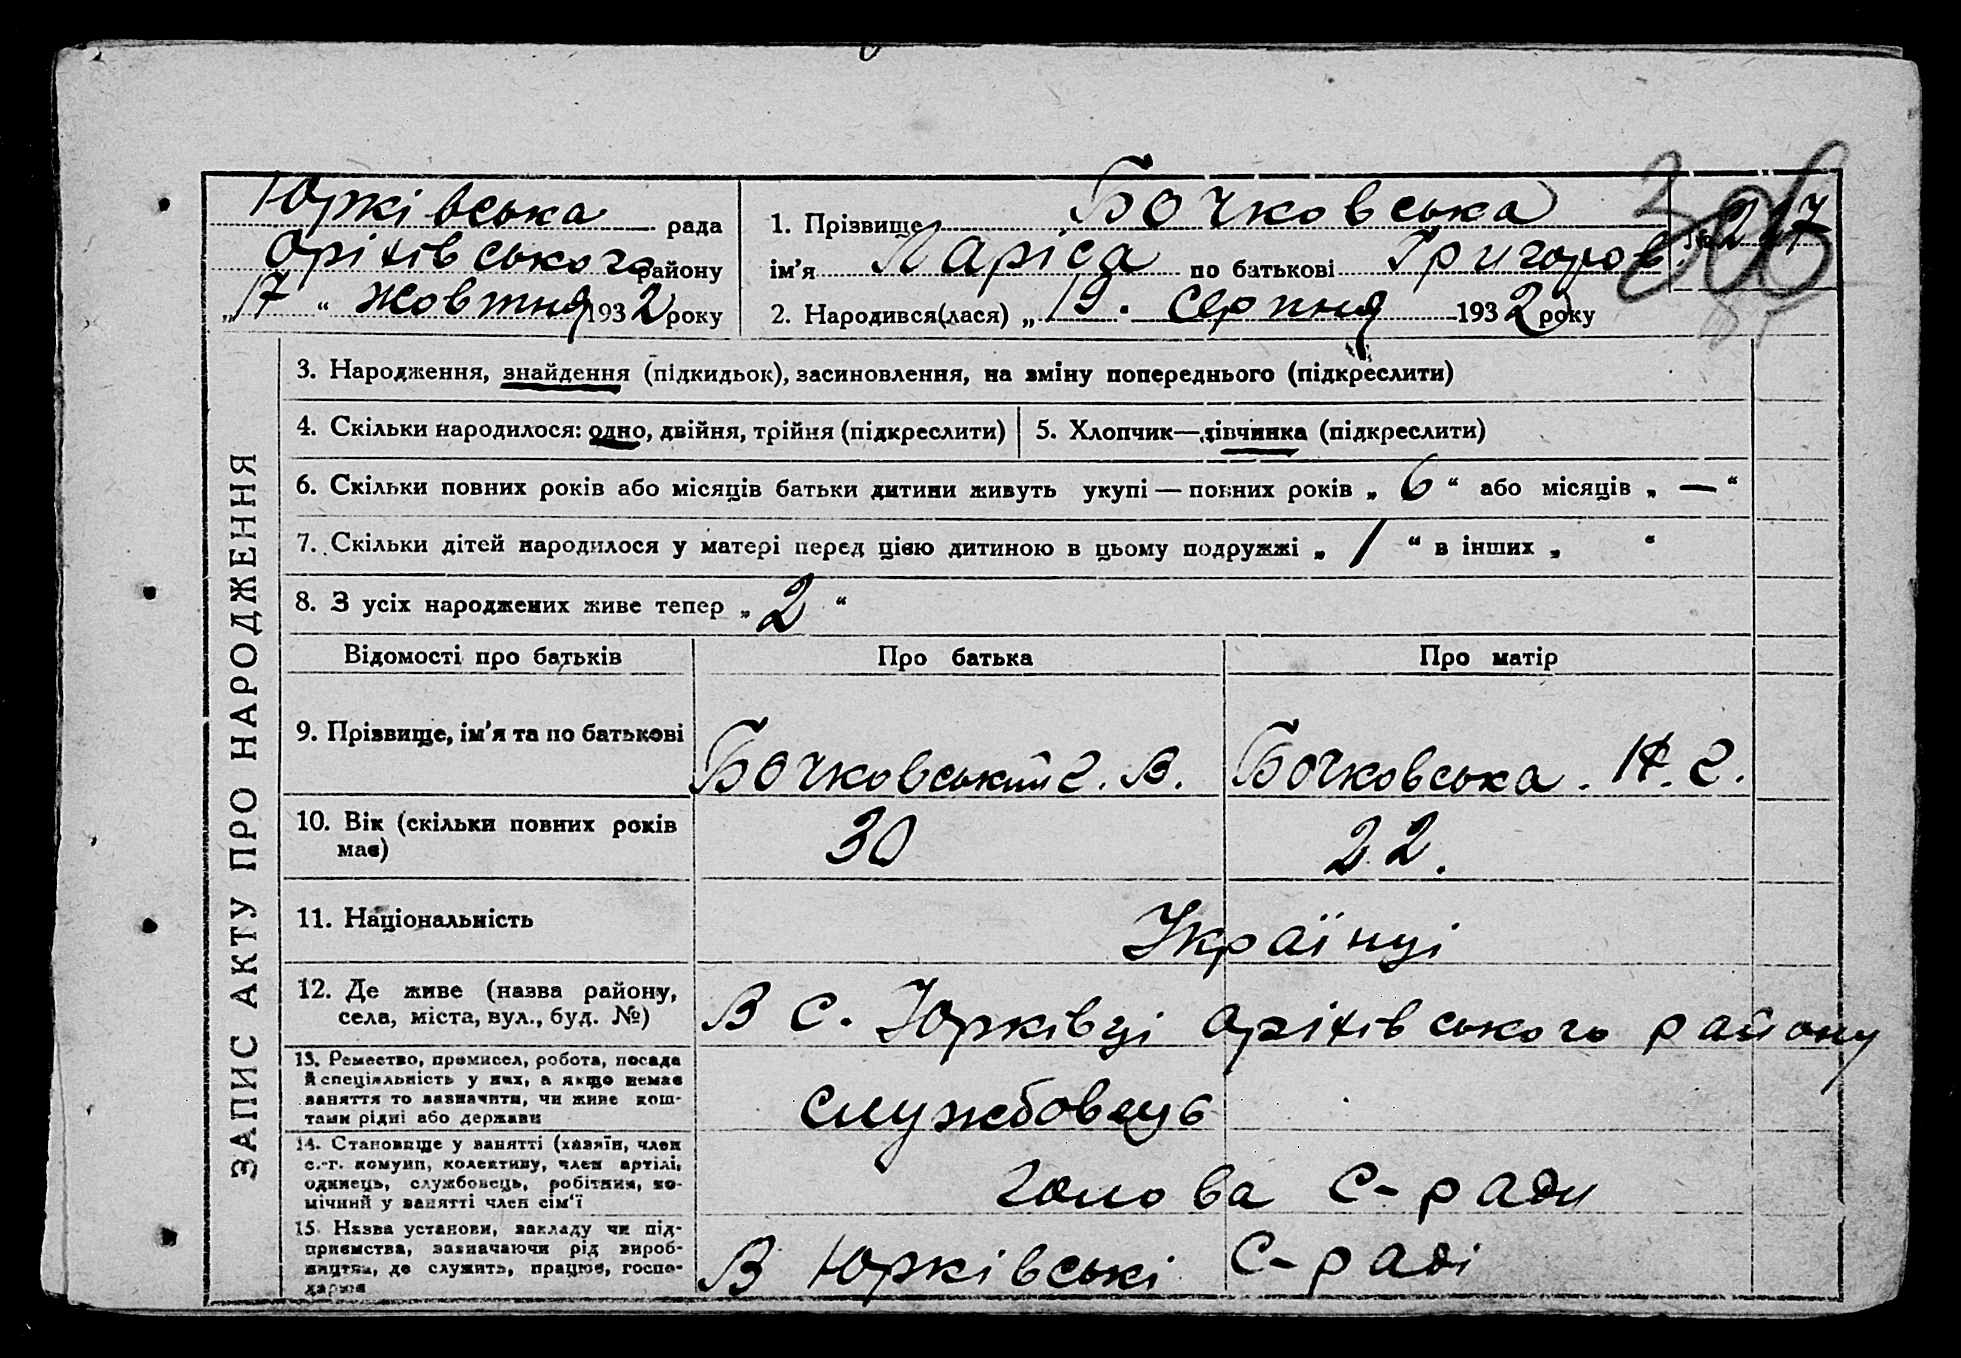 ЗАПИС АКТУ ПРО НАРОДЖЕННЯ
Юрківська рада
Оріхівського району
„17“ Жовтня 1932 року
1. Прізвище Бочковська
ім'я Ларіса по батькові Григоров
№ 217
2. Народився(лася) „19. Серпня 1932 року
3. Народження, знайдення (підкидьок), засиновлення, на зміну попереднього (підкреслити)
4. Скільки народилося: одно, двійня, трійня (підкреслити)
5. Хлопчик—дівчинка (підкреслити)
6. Скільки повних років або місяців батьки дитини живуть укупі — повних років „ 6 “ або місяців „ — “
7. Скільки дітей народилося у матері перед цією дитиною в цьому подружжі „ 1 “ в інших „ “
8. З усіх народжених живе тепер „ 2 “
Відомості про батьків
Про батька
Про матір
9. Прізвище, ім'я та по батькові
Бочковський г. В.
Бочковська. Н. г.
10. Вік (скільки повних років
має)
30
22.
11. Національність
Українці
12. Де живе (назва району,
села, міста, вул., буд. №)
В с. Юрківці Оріхівського району
13. Ремество, промисел, робота, посада
й спеціяльність у них, а якщо немає
заняття то зазначити, чи живе кош-
тами рідні або держави
службовець
14. Становище у занятті (хазяїн, член
с.-г. комуни, колективу, член артілі,
одинець, службовець, робітник, по-
мічний у занятті член сім'ї
голова с-ради
15. Назва установи, закладу чи під-
приємства, зазначаючи рід вироб-
ництва, де служить, працює, госпо-
дарює
В Юрківські с-раді